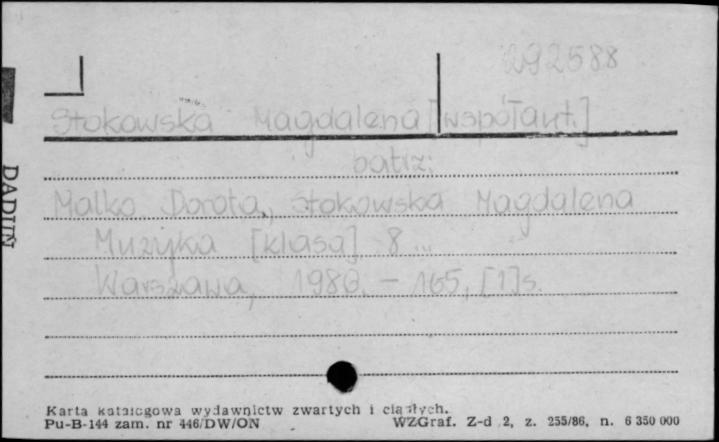 292588
Stokowska Magdalena [współaut.]
patrz:
Malko Dorota, Stokowska Magdalena
Muzyka [klasa] 8 ...
Warszawa, 1980. – 165, [1] s.
Karta katalogowa wydawnictw zwartych i ciągłych.
Pu-B-144 zam. nr 446/DW/ON
WZGraf. Z-d 2, z. 255/86, n. 6 350 000